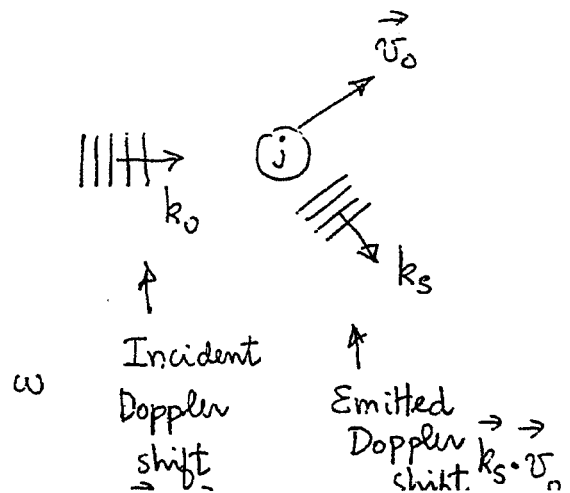 v⃗₀
j
k₀
kₛ
Incident
ω
Doppler
shift
Emitted
Doppler
shift
k⃗ₛ·v⃗₀